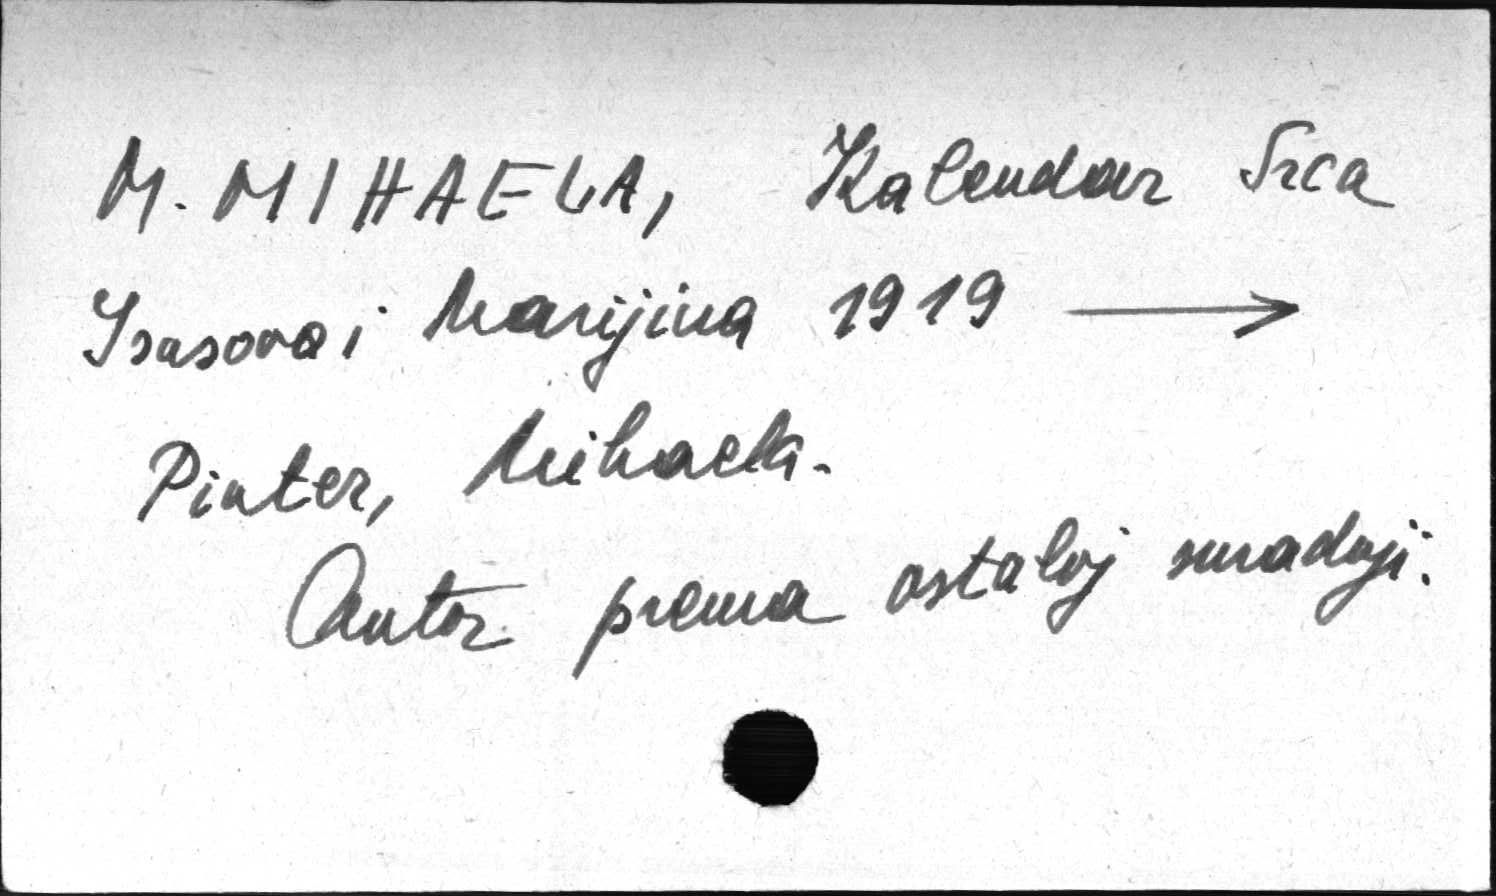 M. MIHAELA, Kalendar Srca
Isusova i Marijina 1919 →
Pinter, Mihaela.
Autor prema ostaloj suradnji.